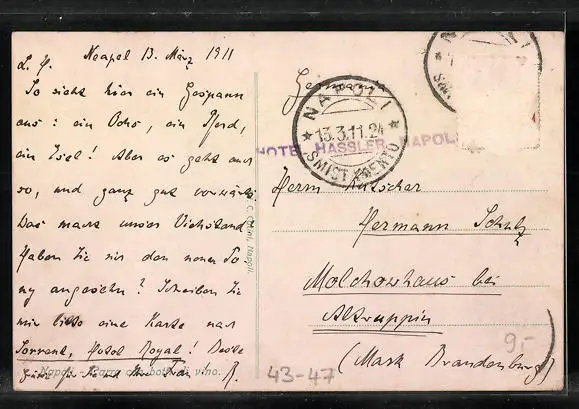 Neapel 13. März 1911
L. H.
So sieht hier ein Gespann
aus: ein Ochs, ein Pferd,
ein Esel! Aber es geht auch
so, und ganz gut vorwärts
Was macht unser Viehstand
Haben Sie sich den neuen Po
ny angesehn? Schreiben Sie
mir bitte eine Karte nach
Sorrent, Hotel Royal! Beste
Grüße für Sie und Ihre Frau R.
Napoli - Carro con botti di vino.
Napoli.
Germania
NAPOLI
13.3.11.24
SMISTAMENTO
HOTEL HASSLER NAPOL
Herrn Kutscher
Hermann Schulz
Molchowhaus bei
Altruppin
(Mark Brandenburg)
43-47
9,-